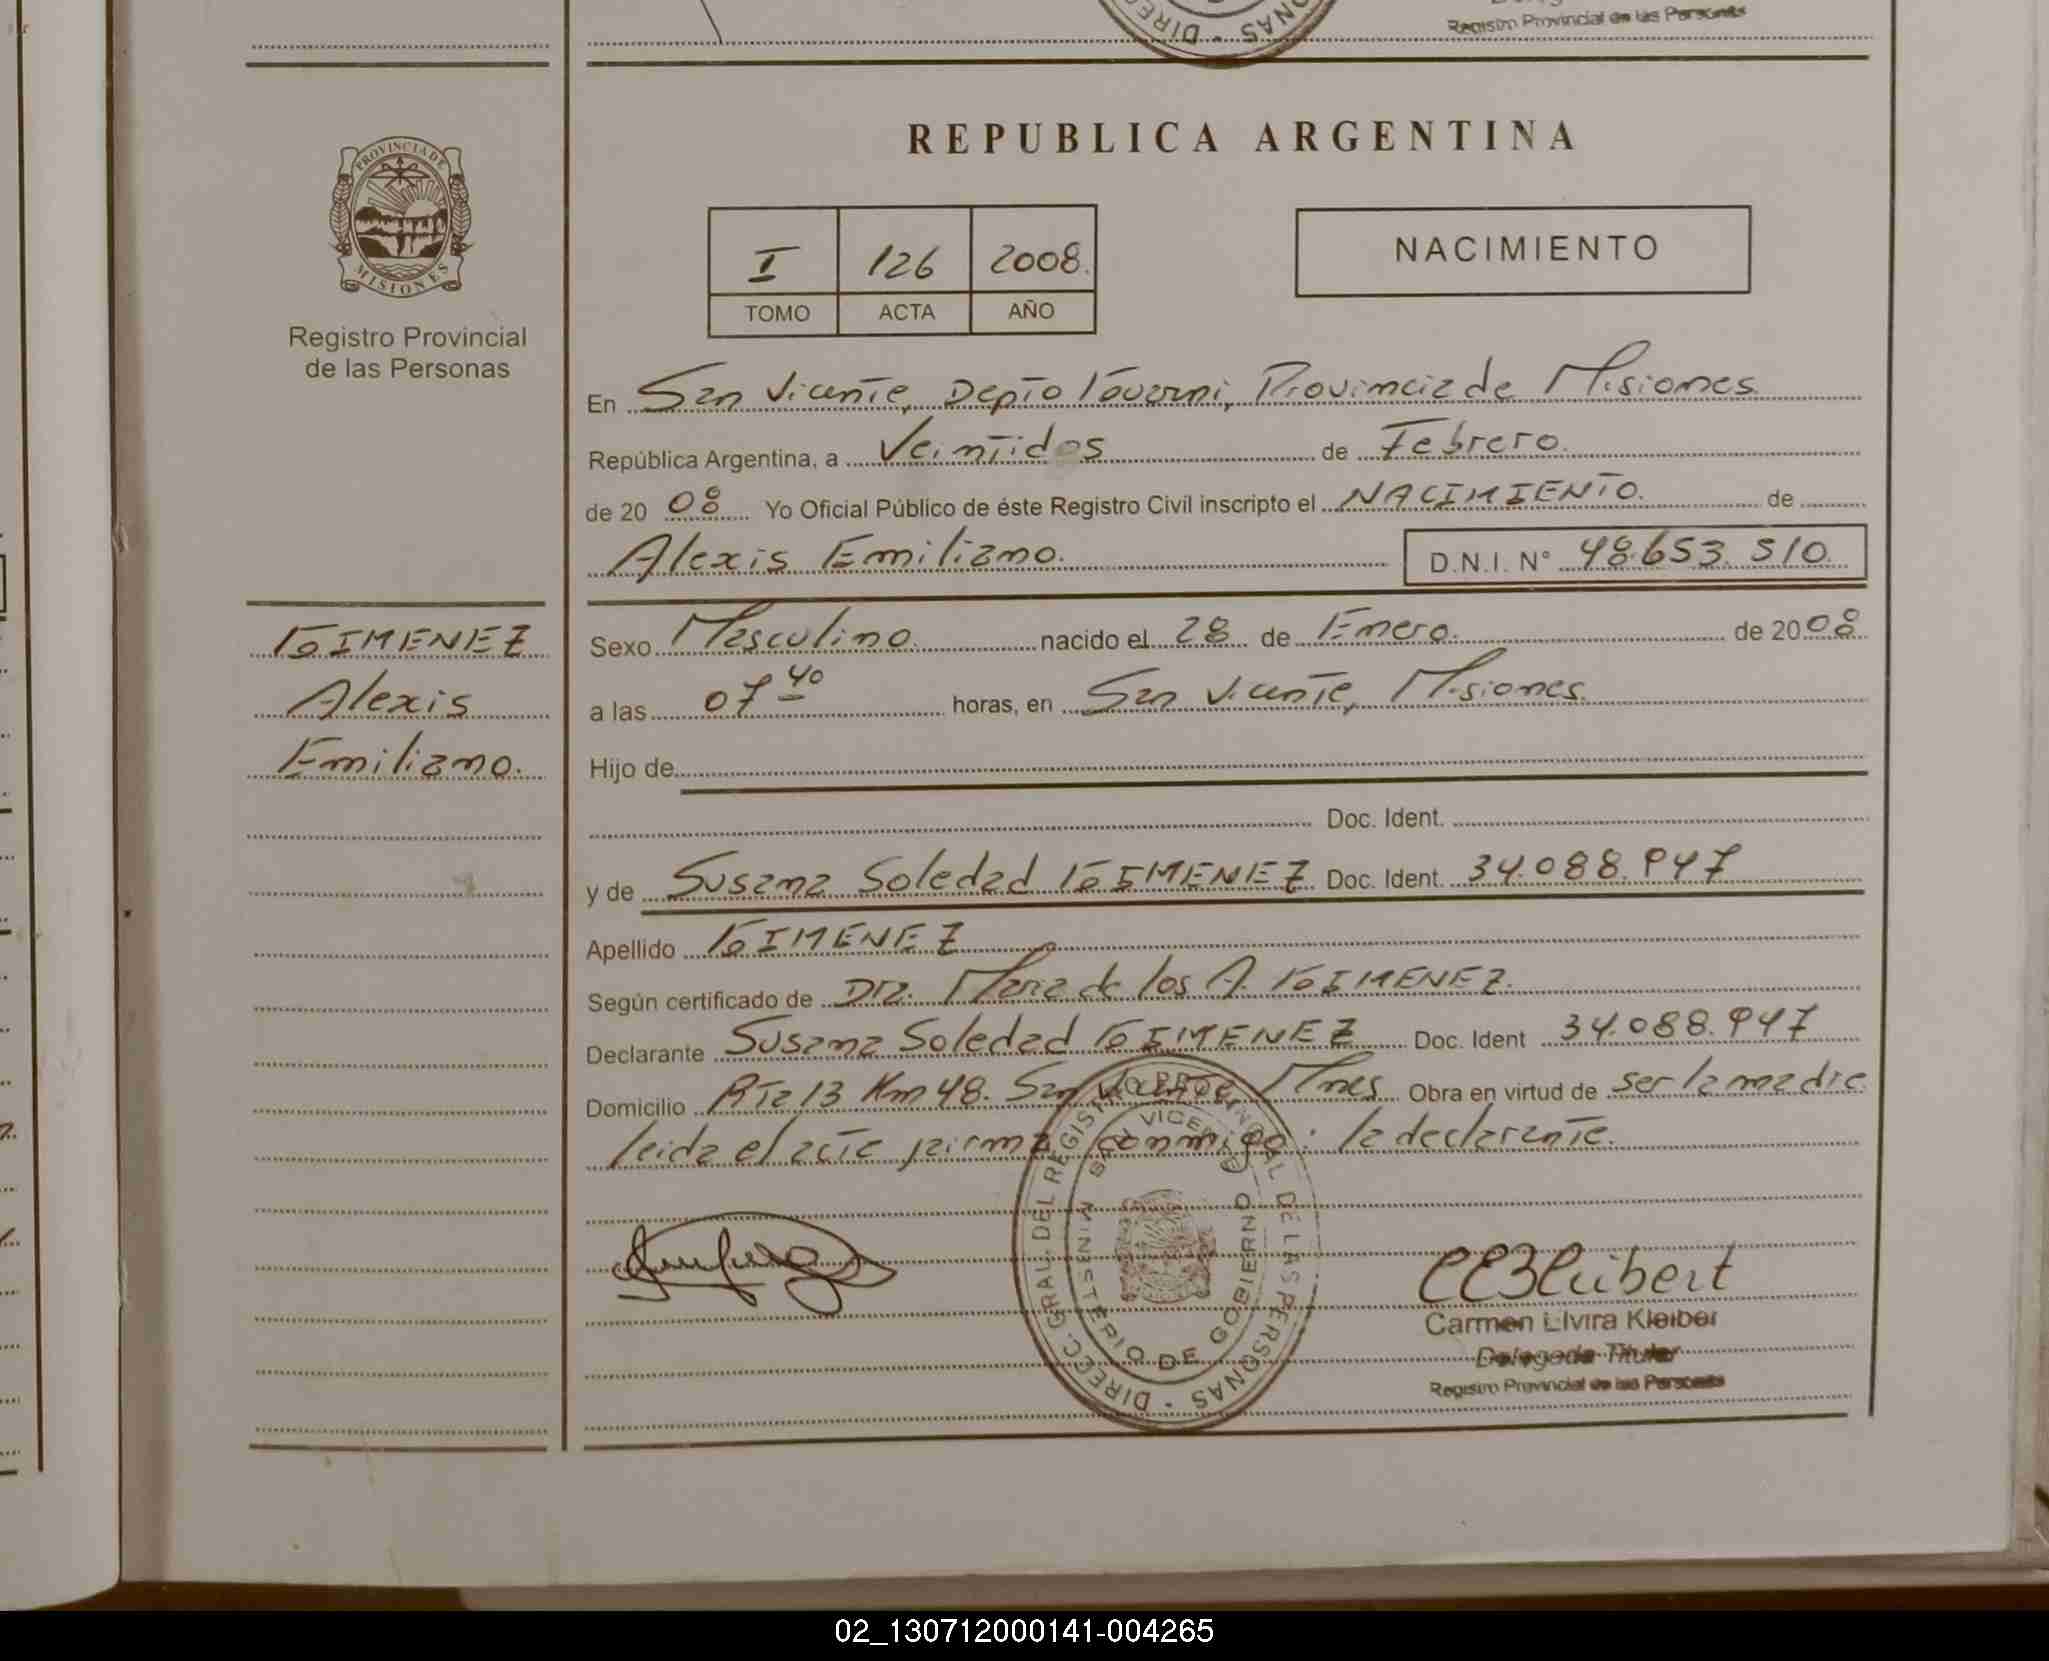 Registro Provincial de las Personas
REPUBLICA ARGENTINA
PROVINCIA DE
MISIONES
Registro Provincial
de las Personas
I 126 2008.
TOMO ACTA AÑO
NACIMIENTO
En San Vicente, Depto Guarani, Provincia de Misiones
República Argentina, a Veintidos de Febrero.
de 20 08 Yo Oficial Público de éste Registro Civil inscripto el NACIMIENTO. de
Alexis Emiliano. D.N.I. N° 48.653.510.
GIMENEZ
Alexis
Emiliano.
Sexo Masculino. nacido el 28 de Enero. de 2008
a las 07 40 horas, en San Vicente, Misiones.
Hijo de
Doc. Ident.
y de Susana Soledad GIMENEZ Doc. Ident. 34.088.947
Apellido GIMENEZ
Según certificado de Dra. Maria de los A. GIMENEZ.
Declarante Susana Soledad GIMENEZ Doc. Ident 34.088.947
Domicilio Rta 13 Km 48. San Vicente Mnes Obra en virtud de ser la madre
leida el acta firma conmigo: la declarante.
DIRECC. GRAL. DEL REGISTRO PROVINCIAL DE LAS PERSONAS
SAN VICENTE
MINISTERIO DE GOBIERNO
Carmen Elvira Kleiber
Delegada Titular
Registro Provincial de las Personas
02_130712000141-004265